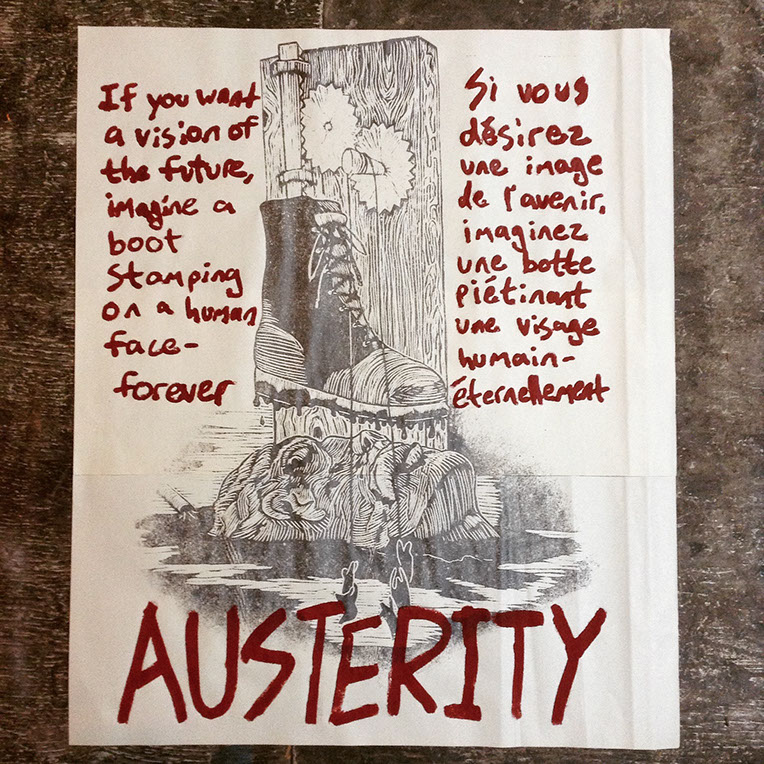 If you want
a vision of
the future,
imagine a
boot
stamping
on a human
face-
forever
Si vous
désirez
une image
de l'avenir,
imaginez
une botte
piétinant
une visage
humain-
éternellement
AUSTERITY